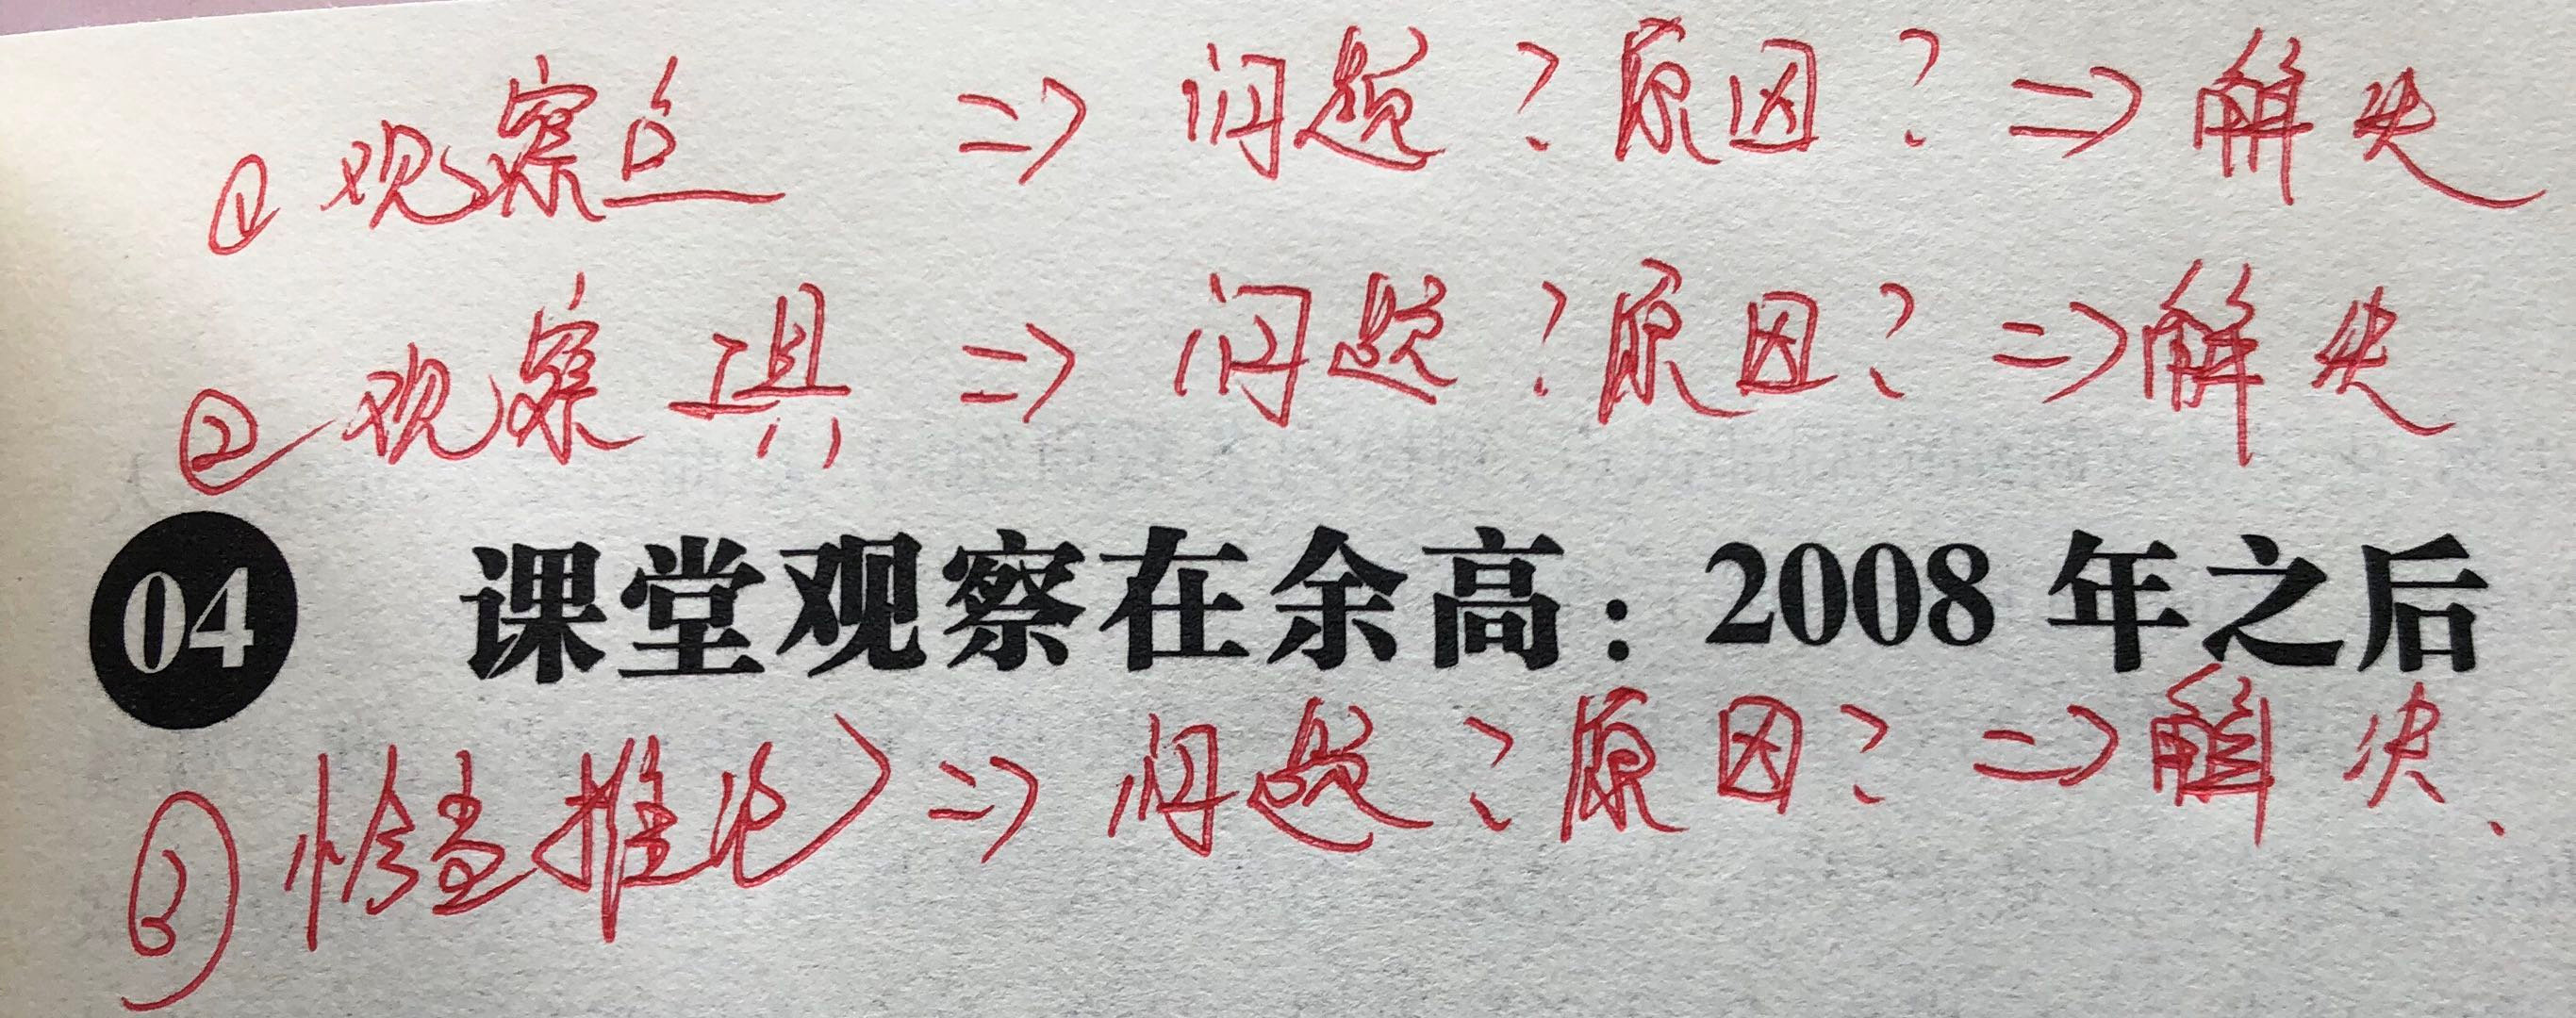 ① 观察点 => 问题？原因？=> 解决
② 观察工具 => 问题？原因？=> 解决
04 课堂观察在余高：2008 年之后
③ 恰当推论 => 问题？原因？=> 解决、